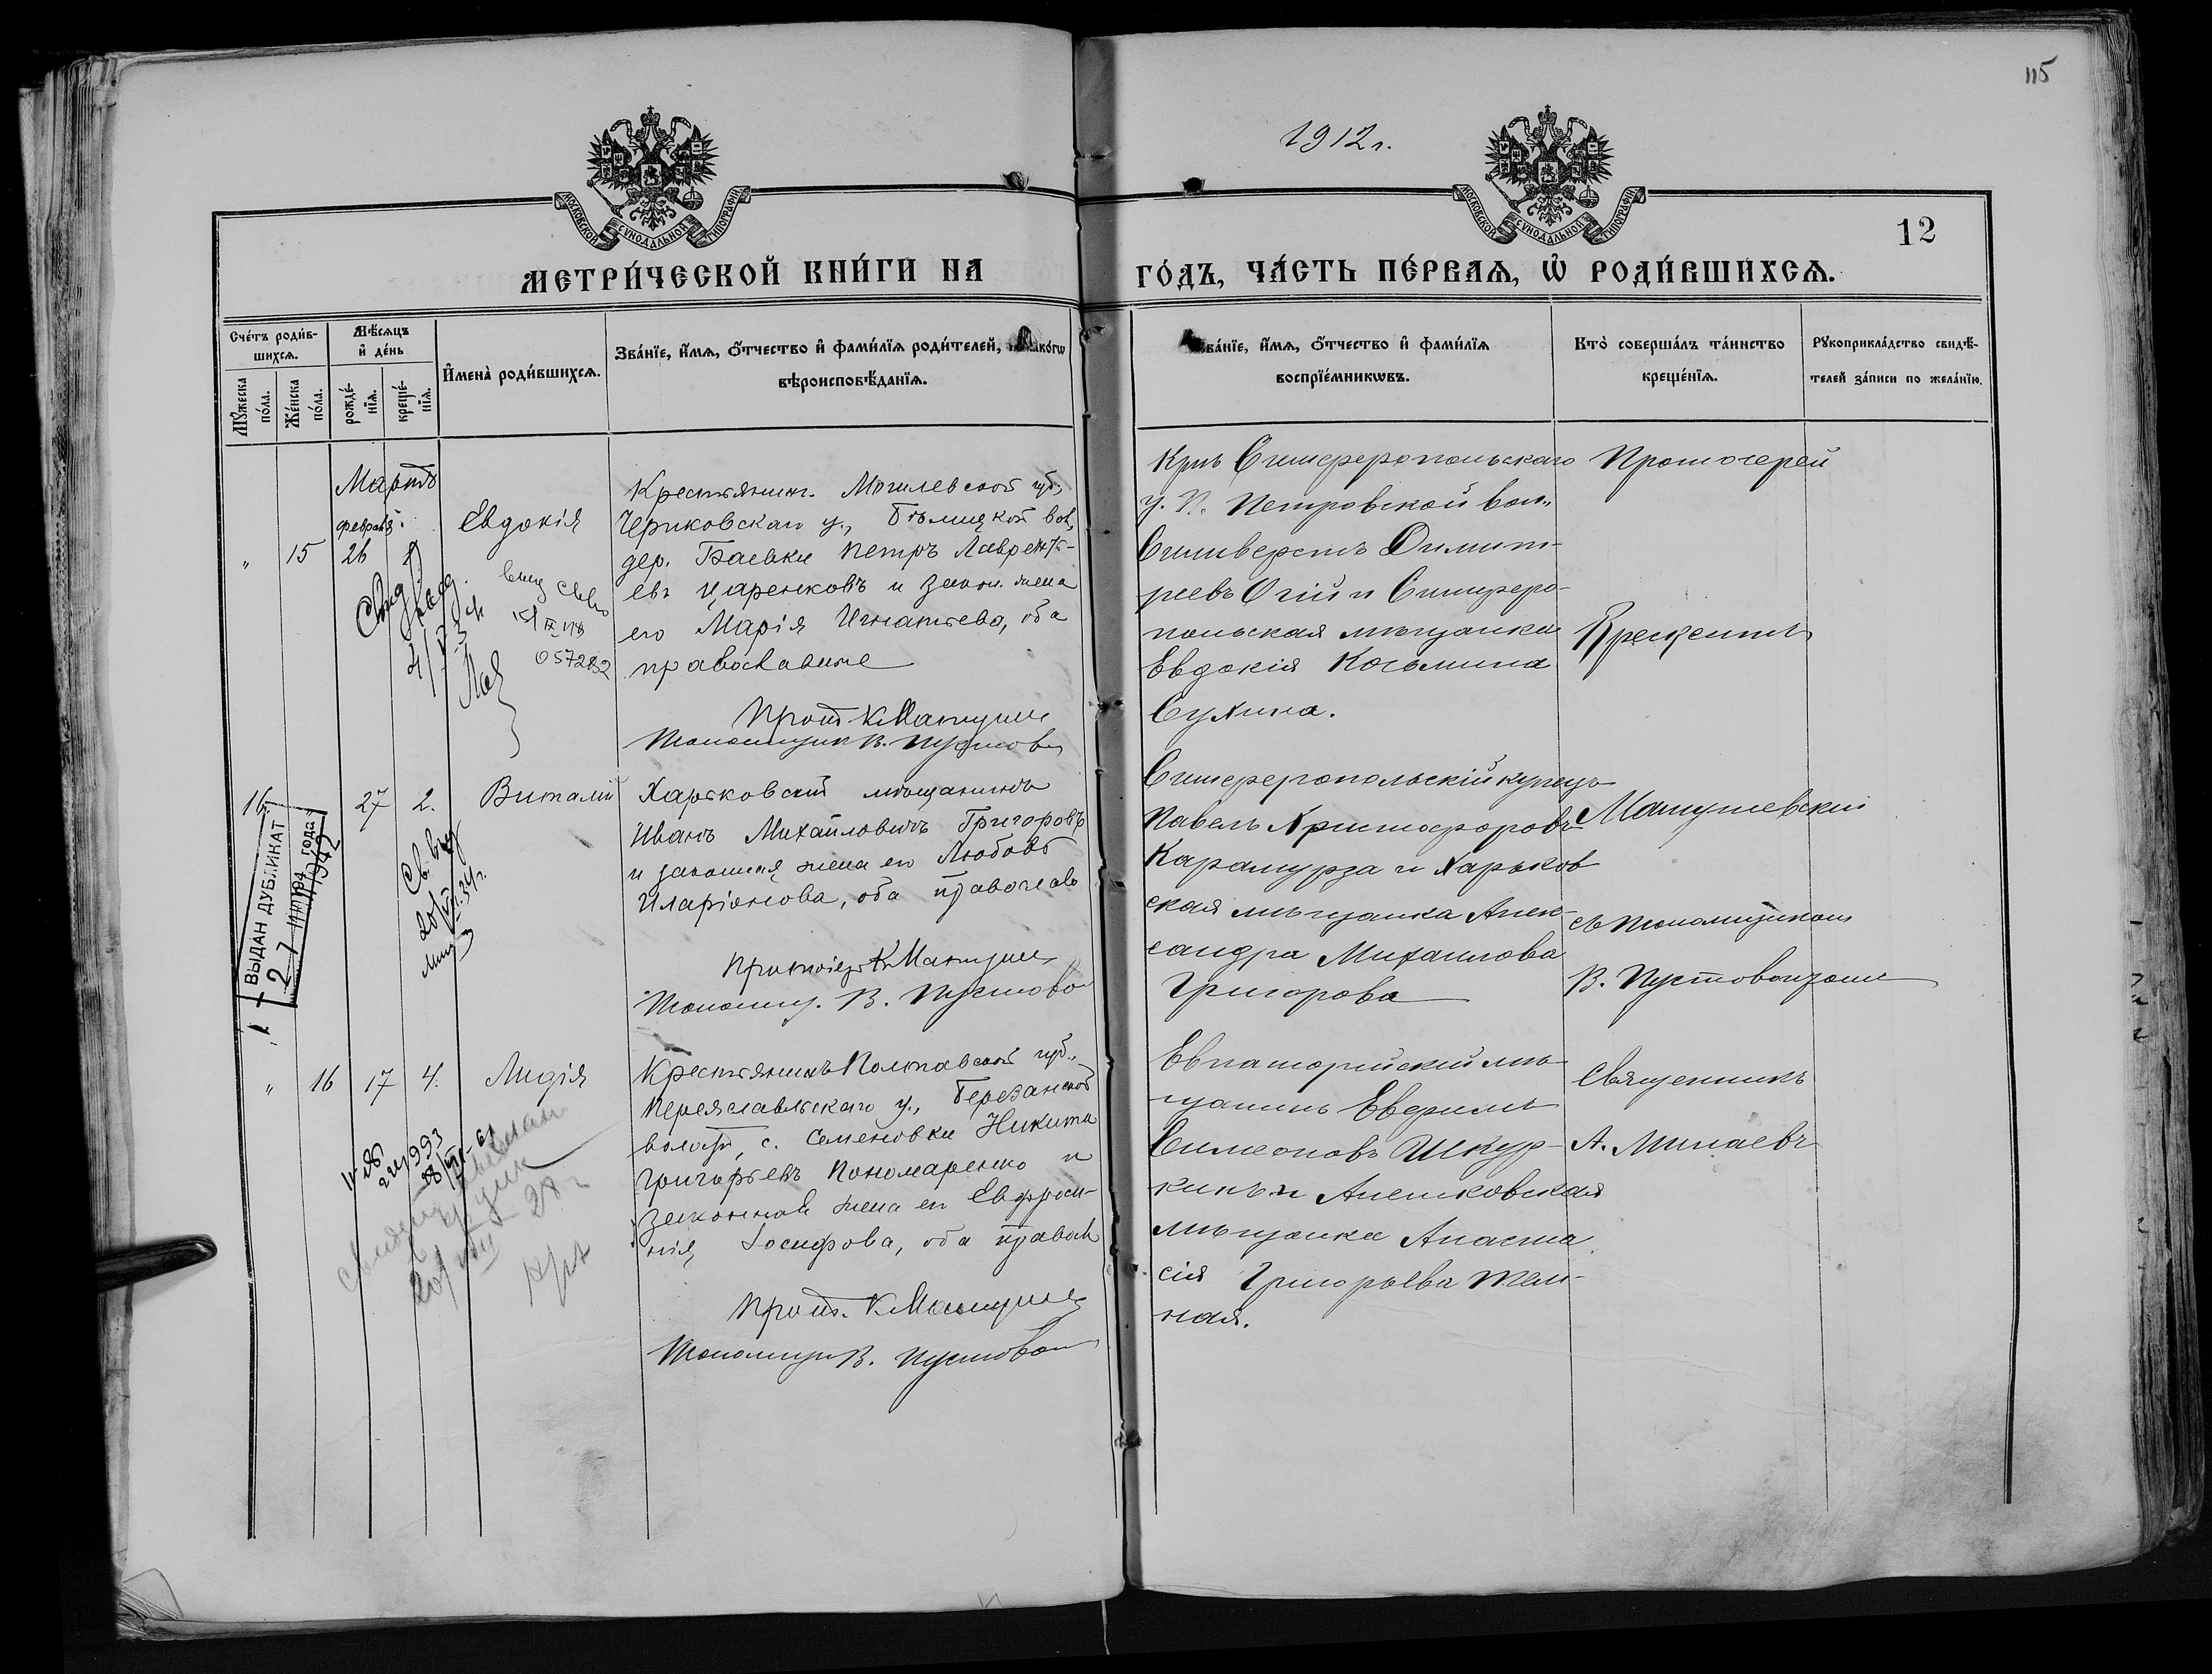 115
1912 г.
МОСКОВСКОЙ СѴНОДАЛЬНОЙ ТИПОГРАФІИ
МОСКОВСКОЙ СѴНОДАЛЬНОЙ ТИПОГРАФІИ
12
МЕТРИ́ЧЕСКОЙ КНИ́ГИ НА
ГО́ДЪ, ЧА́СТЬ ПЕ́РВАѦ, Ѡ҆ РОДИ́ВШИХСѦ.
Сче́тъ роди́в-
шихсѧ.
Мꙋ́жеска
по́ла.
Же́нска
по́ла.
Мѣ́сѧцъ
и҆ де́нь
рожде́-
нїѧ.
креще́-
нїѧ.
И҆мена̀ роди́вшихсѧ.
Зва́нїе, и҆́мѧ, ѻ҆́тчество и҆ фами́лїѧ роди́телей, и҆ како́гѡ
вѣроисповѣ́данїѧ.
Зва́нїе, и҆́мѧ, ѻ҆́тчество и҆ фами́лїѧ
воспрїе́мникѡвъ.
Кто̀ соверша́лъ та́инство
креще́нїѧ.
Рꙋкоприкла́дство свидѣ́-
телей за́писи по жела́нїю.
Мартъ
февраля
" 15 26
Евдокія
057282
Крестьянинъ Могилевской губ.,
Чериковскаго у., Бѣлицкой вол.,
дер. Баевки Петръ Лаврентъ-
евъ Царенковъ и закон. жена
его Марія Игнатьева, оба
православные
Прот. К. Матуше
Псаломщик В. Пустово
Крнъ Симферопольскаго
у. Н. Петровской вол.
Силиверстъ Димит-
ріевъ Огій и Симферо-
польская мѣщанка
Евдокія Косьмина
Сухина.
Протоіерей
16 27 2.
Виталій
ВЫДАН ДУБЛИКАТ
27 1942 года
Харьковскій мѣщанинъ
Иванъ Михайловичъ Григоровъ
и законная жена его Любовь
Иларіонова, оба православ
Протоіер К. Матуше
Псаломщ. В. Пустово
Симферопольскій купецъ
Павелъ Христофоровъ
Карамурза и Харьков
ская мѣщанка Алек-
сандра Михаилова
Григорова
Матушевскій
съ псаломщикомъ
В. Пустовойтомъ
" 16 17 4.
Лидія
Крестьянинъ Полтавской губ.,
Переяславльскаго у., Березанской
волости, с. Семеновки Никита
Григорьевъ Пономаренко и
законная жена его Евфроси-
нія Іосифова, оба правосл
Прот. К. Матуше
Псаломщик В. Пустовой
Евпаторійскій мѣ-
щанинъ Евфимъ
Симеоновъ Шкур-
кинъ и Алешковская
мѣщанка Анаста
сія Григорьева Тем-
ная.
Священникъ
А. Минаевъ